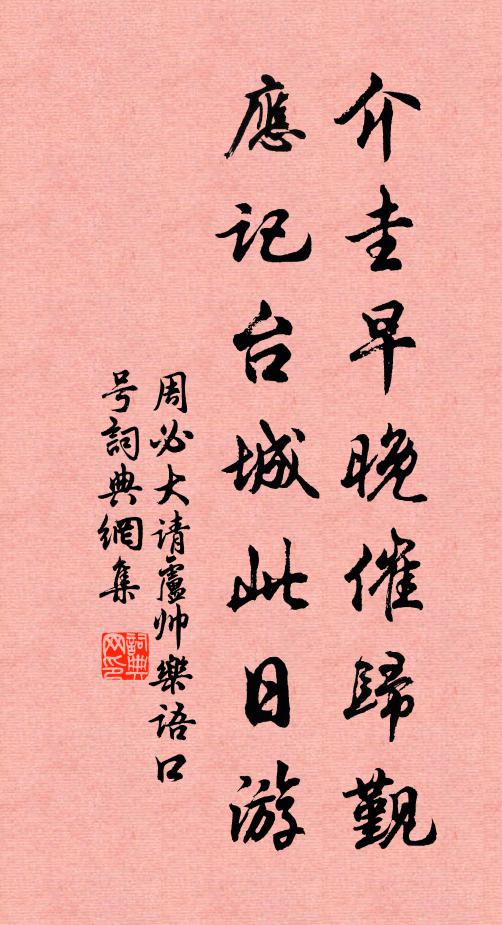 介圭早晚催歸觐
應记台城此日游
周必大请盧帅樂语口
号詞典網集
詞典网印